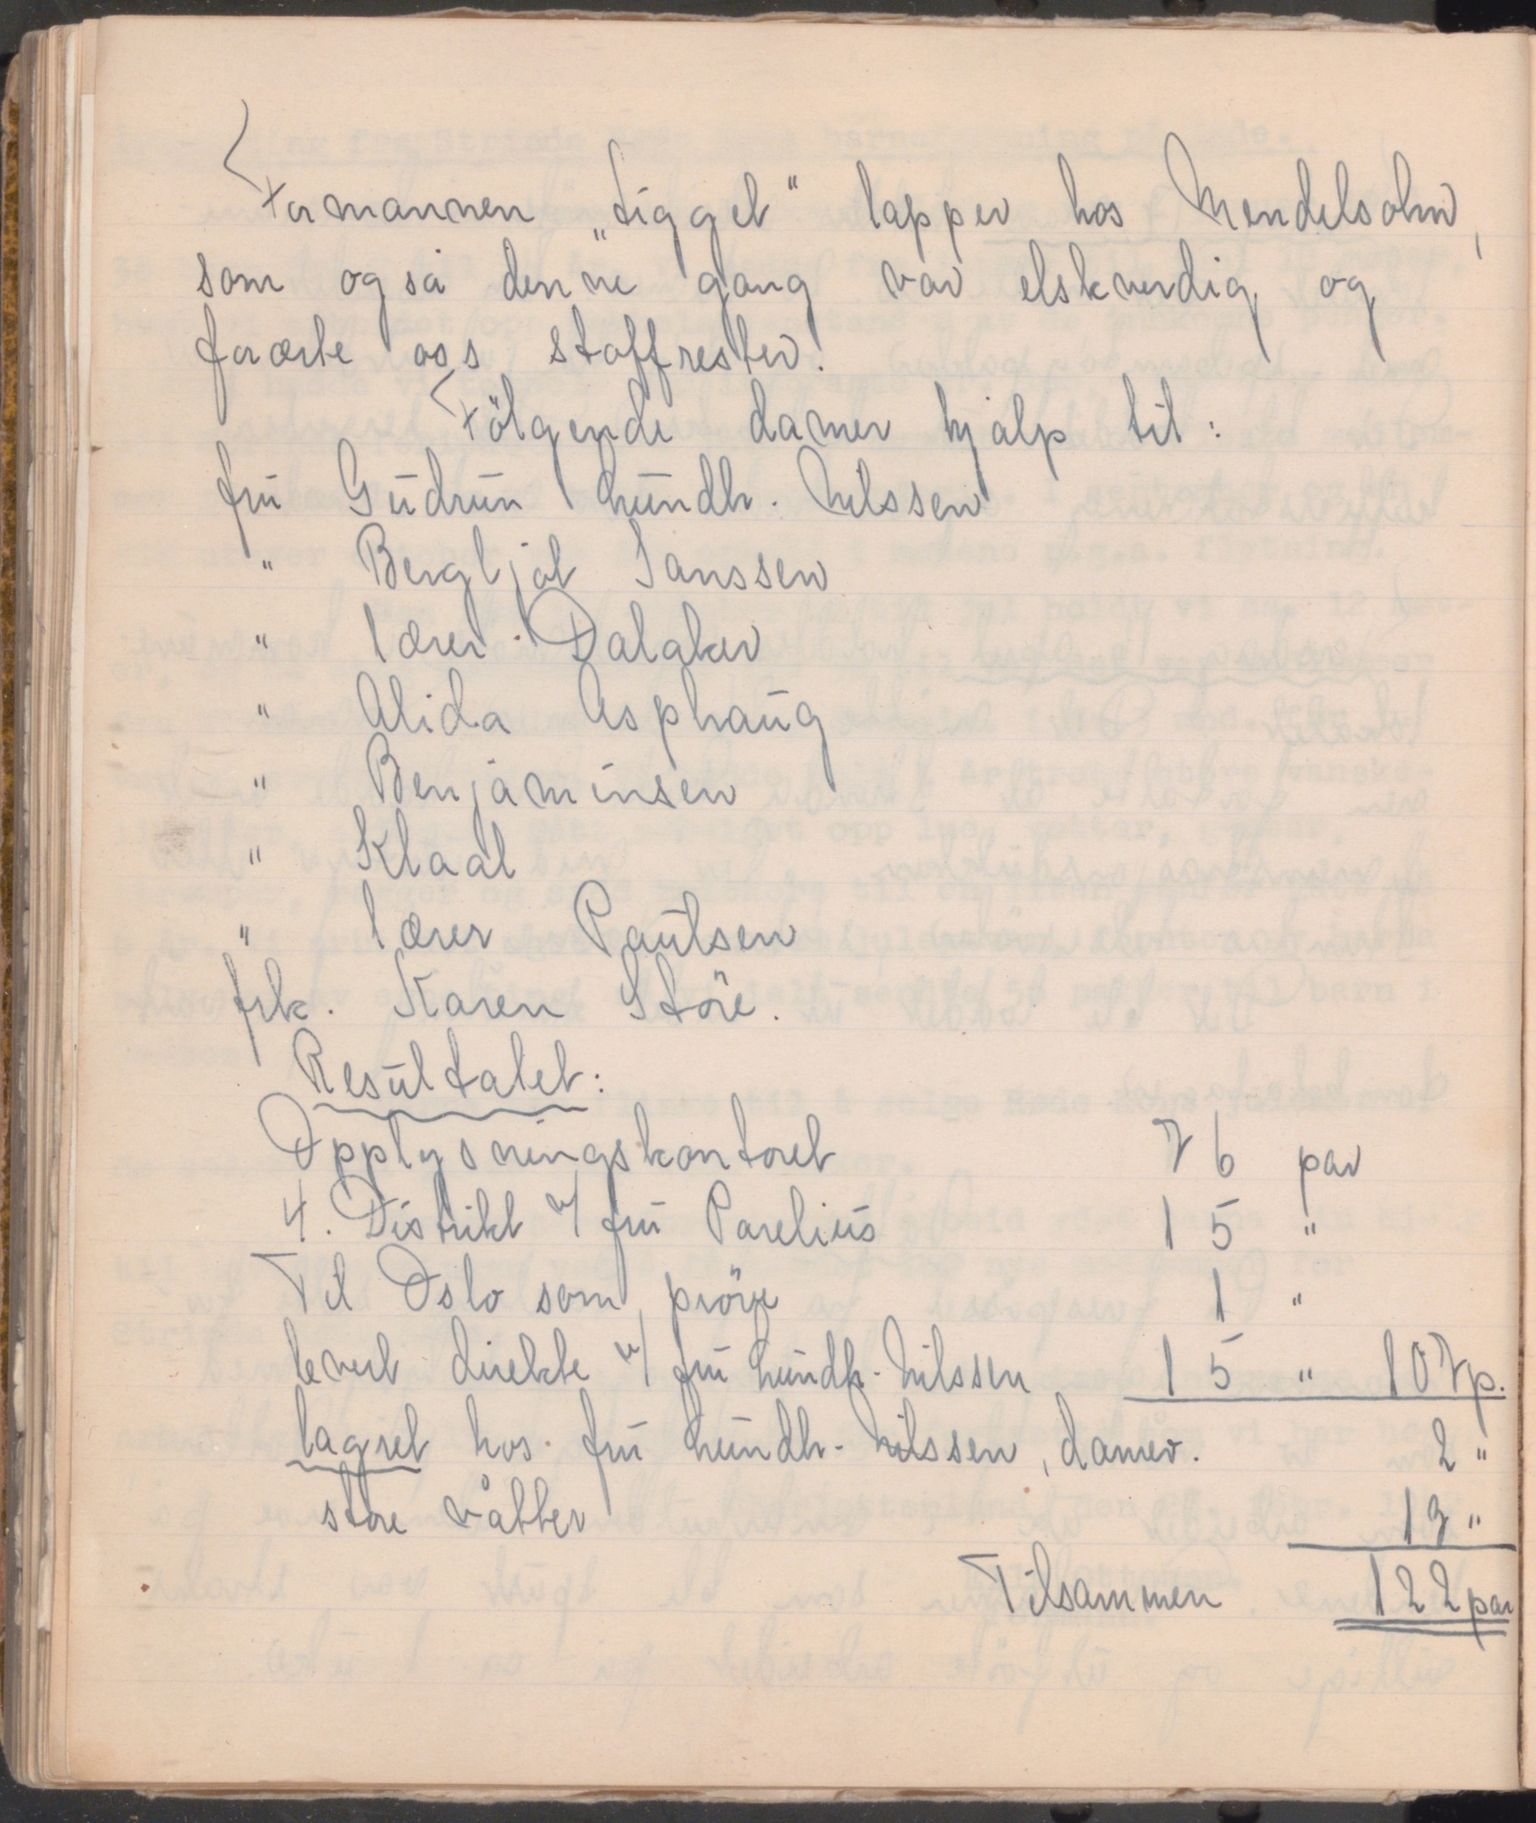 Formannen „tigget" lapper hos Mendelsohn,
som også denne gang var elskverdig og
forærte oss stoffrester.
Følgende damer hjalp til:
fru Gudrun Lundh. Nilssen
" Bergljot Janssen
" lærer Dalaker
" Alida Asphaug
" Benjaminsen
" Klaal
" lærer Paulsen
frk. Karen Støre.
Resultatet:
Opplysningskontoret 76 par
4. Distrikt v/ fru Parelius 15 "
Til Oslo som prøve 1 "
levert direkte v/ fru Lundh. Nilssen 15 " 107 p.
lagret hos fru Lundh. Nilssen, damev. 2 "
store våtter 13 "
Tilsammen 122 par